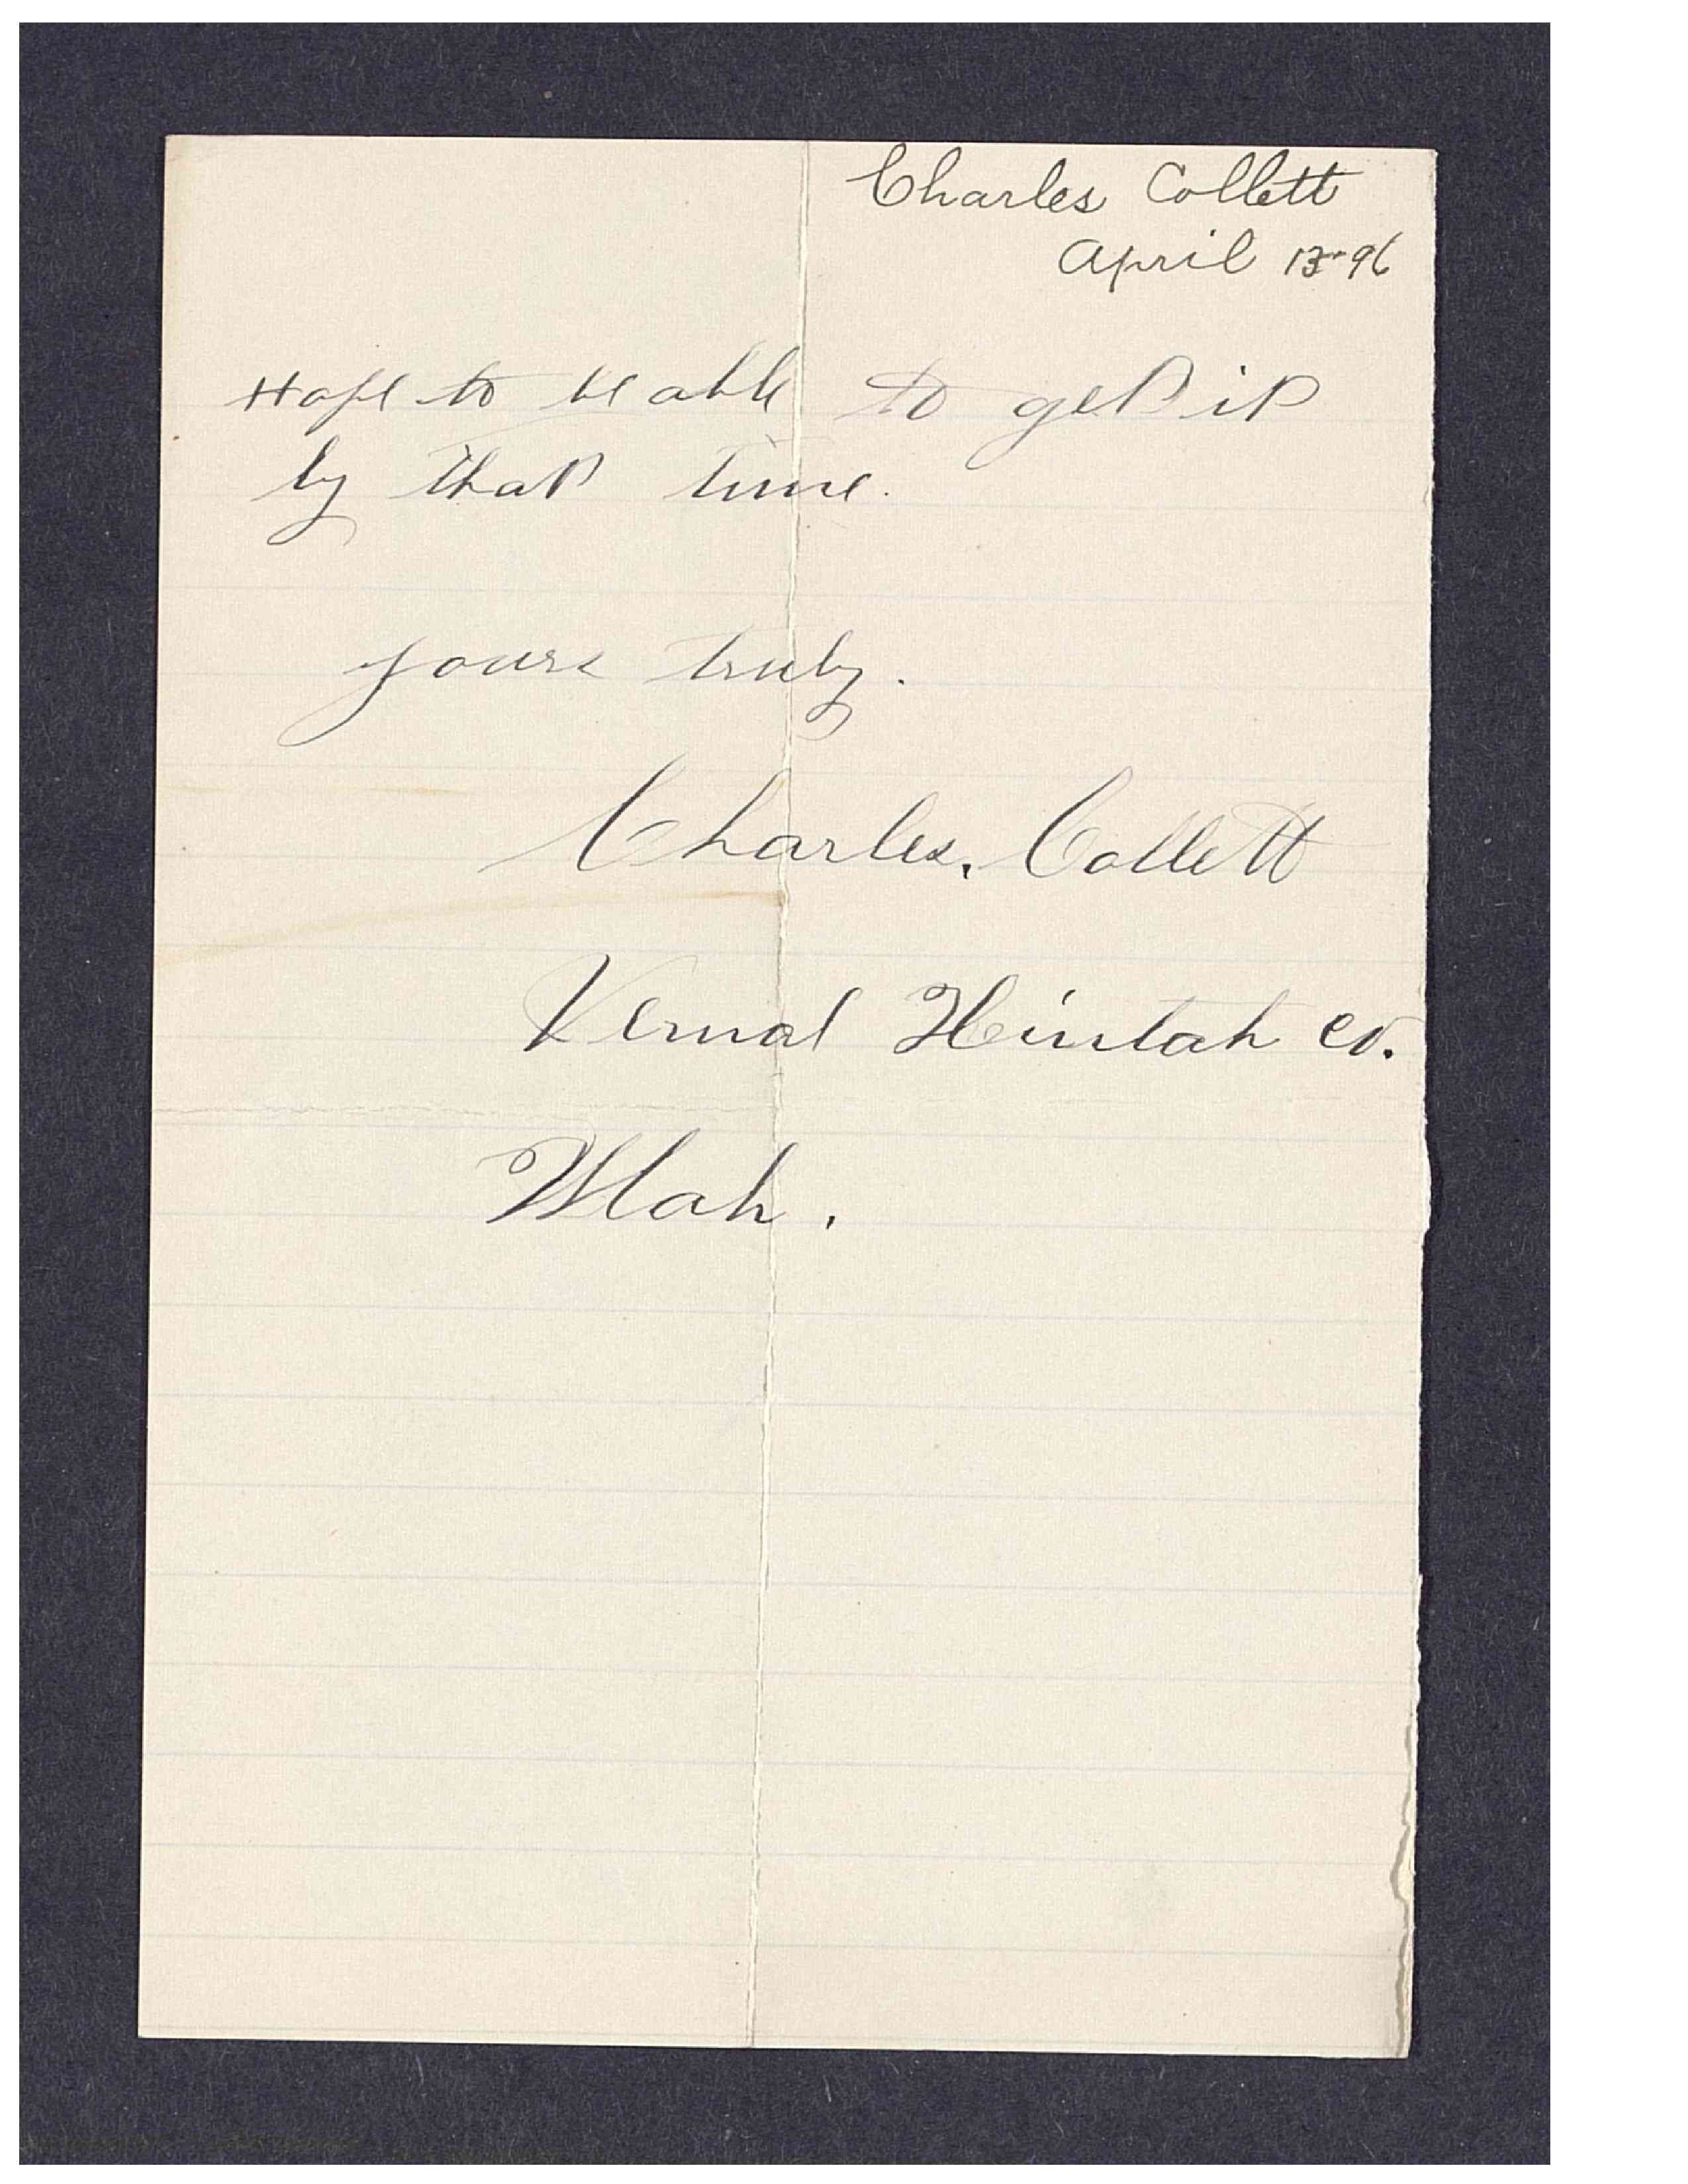 Charles Collett
April 13-96
Hope to be able to get it
by that time.
yours truly.
Charles, Collett
Vernal Uintah Co.
Utah.